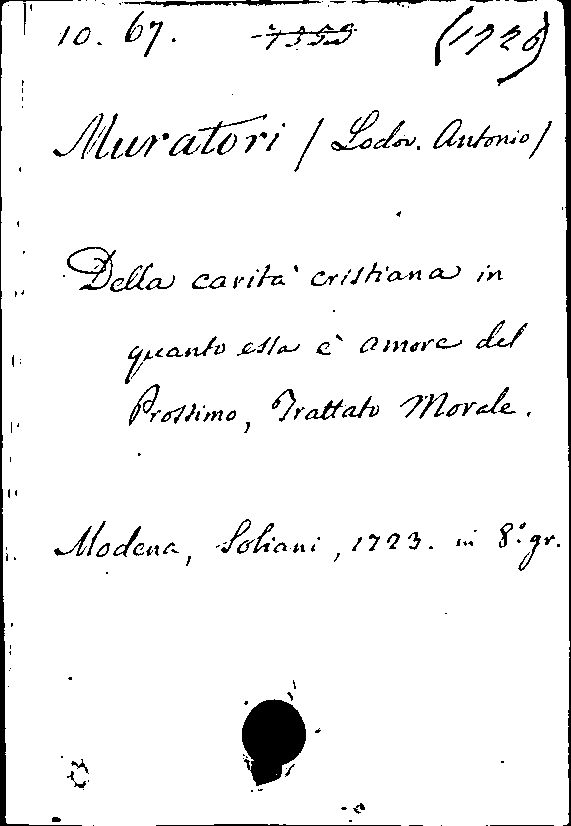 10. 67. 7353 (1726)
Muratori / Lodov. Antonio /
Della carità cristiana in
quanto essa è amore del
Prossimo, Trattato Morale.
Modena, Soliani, 1723. in 8.° gr.